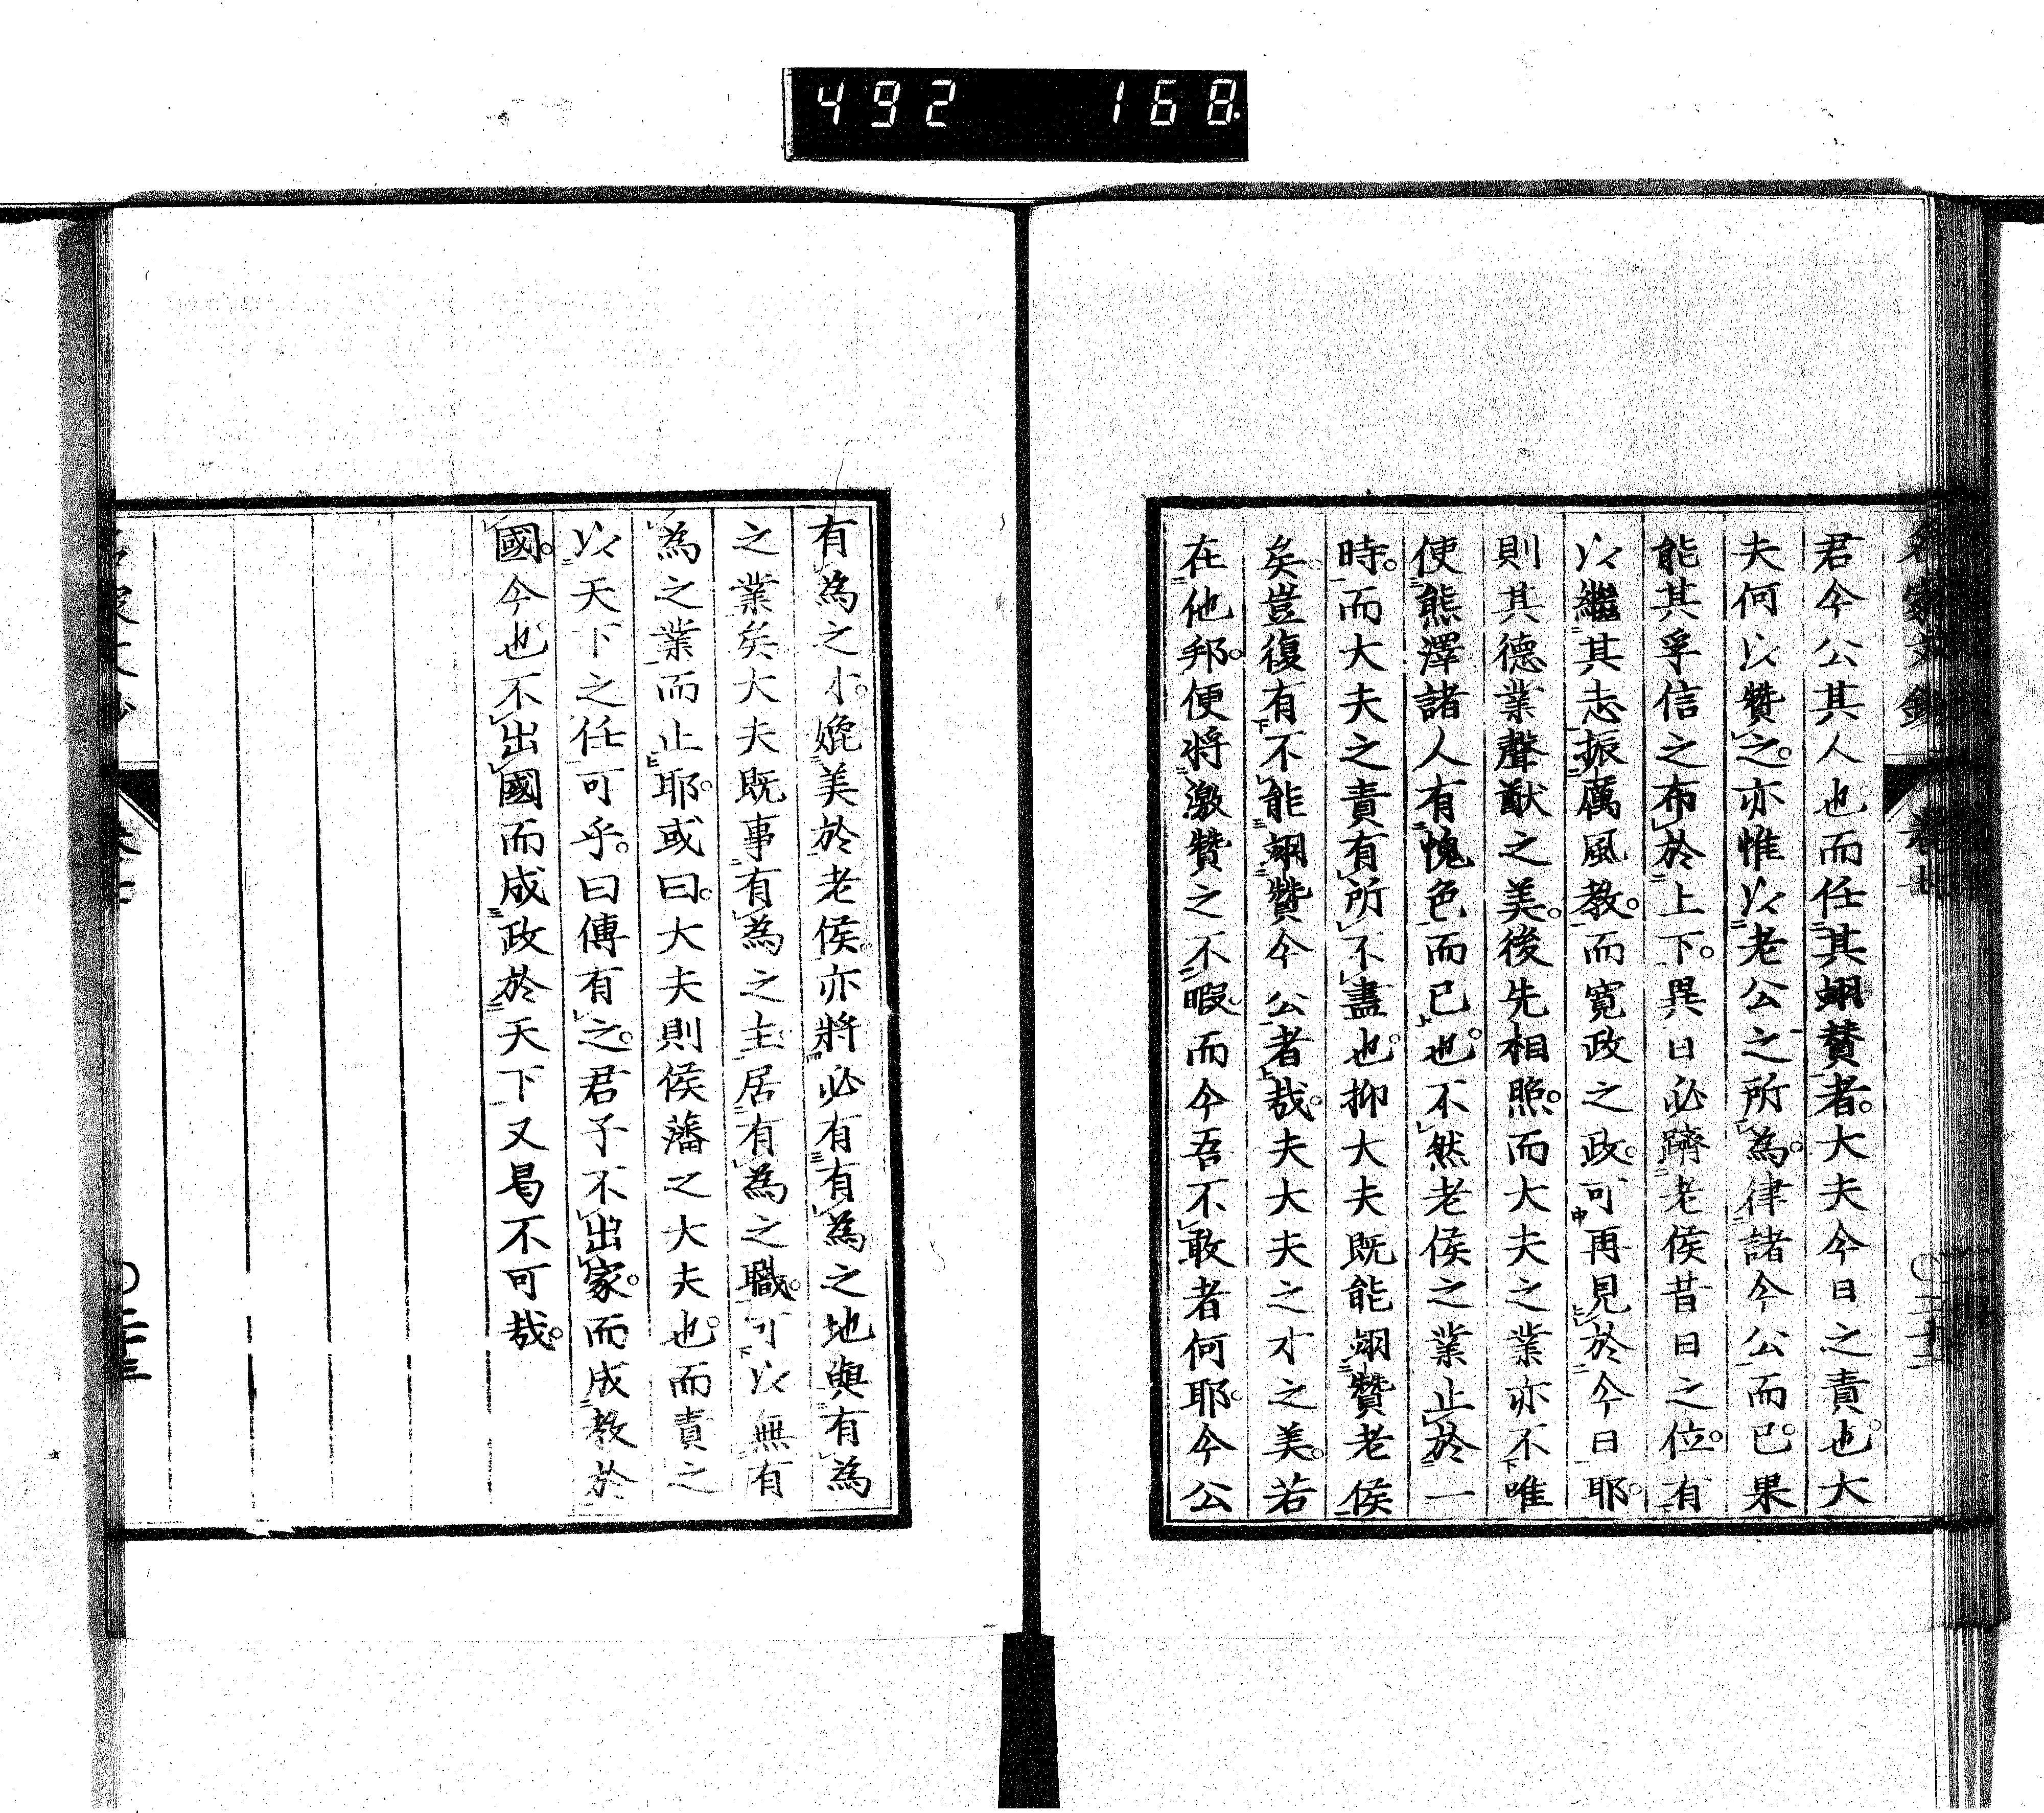 492 168
名家文鈔 卷七 〇二十二
君今公其人也而任其翊賛者。大夫今日之責也。大
夫何以贊之。亦惟以老公之所為。律諸今公而已。果
能其孚信之布於上下。異日必躋老侯昔日之位。有
以繼其志振厲風教。而寛政之政。可再見於今日耶。
則其德業聲猷之美。後先相照。而大夫之業亦不唯
使熊澤諸人有愧色而已也。不然老侯之業止於一
時。而大夫之責有所不盡也。抑大夫既能翊贊老侯
矣。豈復有不能翊贊今公者哉。夫大夫之才之美。若
在他邦。便將激贊之不暇。而今吾不敢者何耶。今公
有為之才。媲美於老侯。亦將必有有為之地與有為
之業矣大夫既事有為之主。居有為之職。可以無有
為之業而止耶。或曰。大夫則侯藩之大夫也。而責之
以天下之任可乎。曰傳有之。君子不出家。而成教於
國。今也不出國而成政於天下又曷不可哉。
名家文鈔 卷七 〇二十三